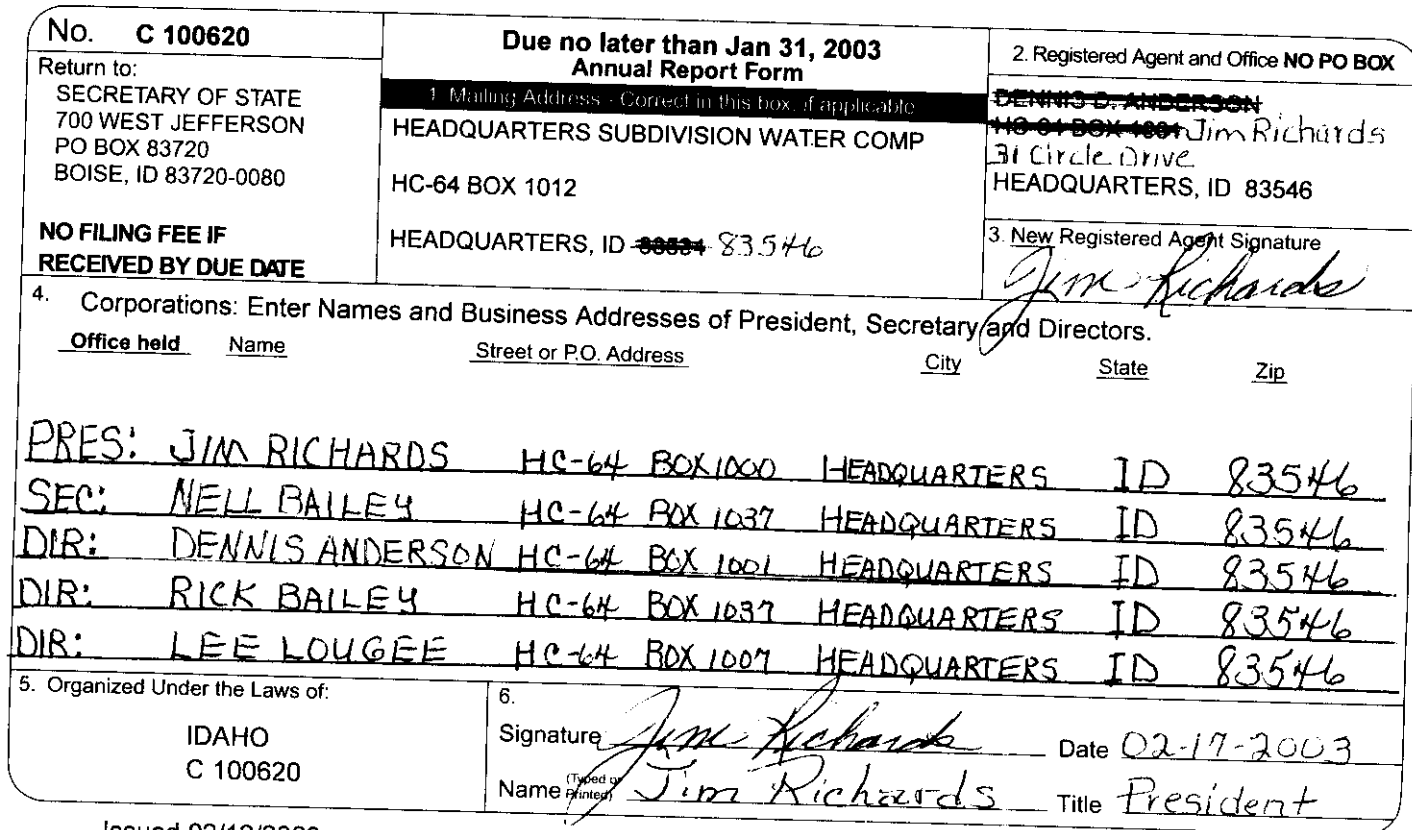 No. C 100620
Return to:
SECRETARY OF STATE
700 WEST JEFFERSON
PO BOX 83720
BOISE, ID 83720-0080
NO FILING FEE IF
RECEIVED BY DUE DATE
Due no later than Jan 31, 2003
Annual Report Form
1. Mailing Address - Correct in this box, if applicable
HEADQUARTERS SUBDIVISION WATER COMP
HC-64 BOX 1012
HEADQUARTERS, ID 83546
2. Registered Agent and Office NO PO BOX
DENNIS D. ANDERSON
HC 64 BOX 1001 Jim Richards
31 Circle Drive
HEADQUARTERS, ID 83546
3. New Registered Agent Signature
Jim Richards
4. Corporations: Enter Names and Business Addresses of President, Secretary and Directors.
Office held Name Street or P.O. Address City State Zip
PRES: JIM RICHARDS HC-64 BOX 1000 HEADQUARTERS ID 83546
SEC: NELL BAILEY HC-64 BOX 1037 HEADQUARTERS ID 83546
DIR: DENNIS ANDERSON HC-64 BOX 1001 HEADQUARTERS ID 83546
DIR: RICK BAILEY HC-64 BOX 1037 HEADQUARTERS ID 83546
DIR: LEE LOUGEE HC-64 BOX 1007 HEADQUARTERS ID 83546
5. Organized Under the Laws of:
IDAHO
C 100620
6.
Signature Jim Richards Date 02-17-2003
Name (Typed or Printed) Jim Richards Title President